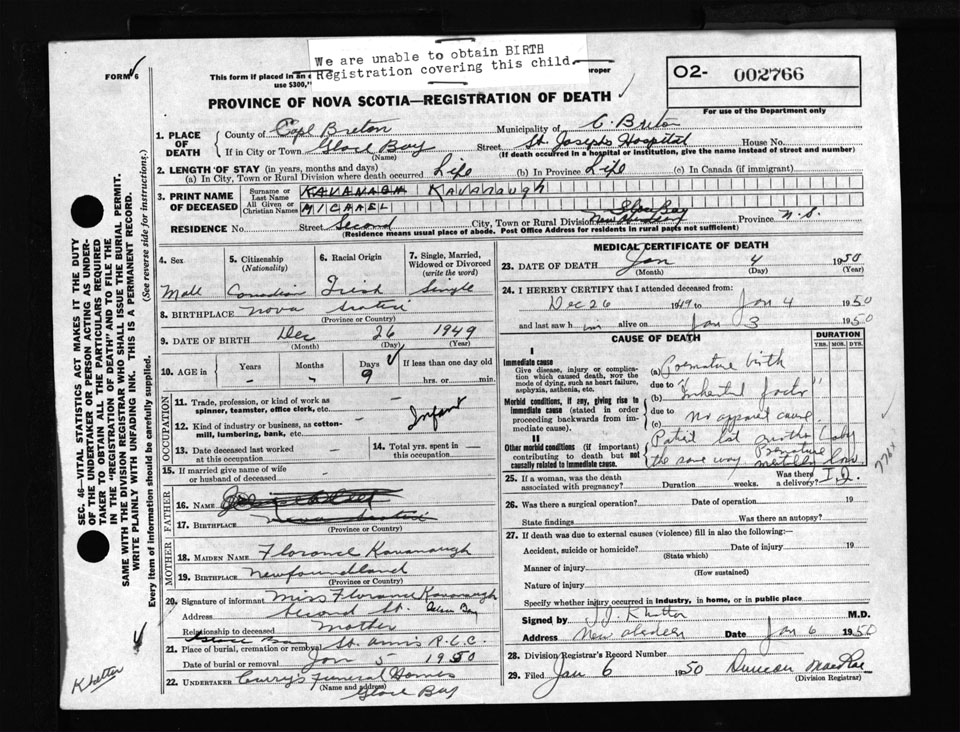 We are unable to obtain BIRTH
Registration covering this child.
FORM 6
This form if placed in an
proper
use $300,
O2- 002766
For use of the Department only
PROVINCE OF NOVA SCOTIA—REGISTRATION OF DEATH
1. PLACE OF DEATH
County of Cape Breton Municipality of C. Breton
If in City or Town Glace Bay Street St. Josephs Hospital House No.
(Name) (If death occurred in a hospital or institution, give the name instead of street and number)
2. LENGTH OF STAY (in years, months and days)
(a) In City, Town or Rural Division where death occurred Life (b) In Province Life (c) In Canada (if immigrant)
3. PRINT NAME OF DECEASED
Surname or Last Name KAVANAGH Kavanaugh
All Given or Christian Names MICHAEL
RESIDENCE No. Street Second City, Town or Rural Division Glace Bay New Aberdeen Province N.S.
(Residence means usual place of abode. Post Office Address for residents in rural parts not sufficient)
4. Sex Male
5. Citizenship (Nationality) Canadian
6. Racial Origin Irish
7. Single, Married, Widowed or Divorced (write the word) Single
8. BIRTHPLACE Nova Scotia
(Province or Country)
9. DATE OF BIRTH Dec 26 1949
(Month) (Day) (Year)
10. AGE in Years - Months - Days 9 If less than one day old
hrs. or min.
OCCUPATION
11. Trade, profession, or kind of work as
spinner, teamster, office clerk, etc.
Infant
12. Kind of industry or business, as cotton-
mill, lumbering, bank, etc.
13. Date deceased last worked
at this occupation
14. Total yrs. spent in
this occupation
15. If married give name of wife
or husband of deceased
FATHER
16. NAME
17. BIRTHPLACE Nova Scotia
(Province or Country)
MOTHER
18. MAIDEN NAME Florance Kavanaugh
19. BIRTHPLACE Newfoundland
(Province or Country)
20. Signature of informant Miss Florance Kavanaugh
Address Second St. Glace Bay
Relationship to deceased mother
21. Place of burial, cremation or removal St. Anns R.C.C.
Date of burial or removal Jan 5 1950
22. UNDERTAKER Curry's Funeral Homes
(Name and address) Glace Bay
MEDICAL CERTIFICATE OF DEATH
23. DATE OF DEATH Jan 4 1950
(Month) (Day) (Year)
24. I HEREBY CERTIFY that I attended deceased from:
Dec 26 1949 to Jan 4 1950
and last saw him alive on Jan 3 1950
CAUSE OF DEATH
DURATION
YRS. MOS. DYS.
I
Immediate cause
Give disease, injury or complica-
tion which caused death, NOT the
mode of dying, such as heart failure,
asphyxia, asthenia, etc.
(a) Premature birth
due to "Inherited factor"
Morbid conditions, if any, giving rise to
immediate cause (stated in order
proceeding backwards from im-
mediate cause).
(b)
due to No apparent cause
(c)
II
Other morbid conditions (if important)
contributing to death but not
causally related to immediate cause.
Patient lost another baby
the same way Premature
776x
25. If a woman, was the death
associated with pregnancy? Duration weeks. Was there a delivery?
26. Was there a surgical operation? Date of operation 19
State findings Was there an autopsy?
27. If death was due to external causes (violence) fill in also the following:—
Accident, suicide or homicide? Date of injury 19
(State which)
Manner of injury
(How sustained)
Nature of injury
Specify whether injury occurred in industry, in home, or in public place
Signed by M.D.
Address New Aberdeen Date Jan 6 1950
28. Division Registrar's Record Number
29. Filed Jan 6 1950 Duncan MacRae
(Division Registrar)
SEC. 46—VITAL STATISTICS ACT MAKES IT THE DUTY
OF THE UNDERTAKER OR PERSON ACTING AS UNDER-
TAKER TO OBTAIN ALL THE PARTICULARS REQUIRED
IN THE "REGISTRATION OF DEATH" AND TO FILE THE
SAME WITH THE DIVISION REGISTRAR WHO SHALL ISSUE THE BURIAL PERMIT.
WRITE PLAINLY WITH UNFADING INK. THIS IS A PERMANENT RECORD.
Every item of information should be carefully supplied.
(See reverse side for instructions.)